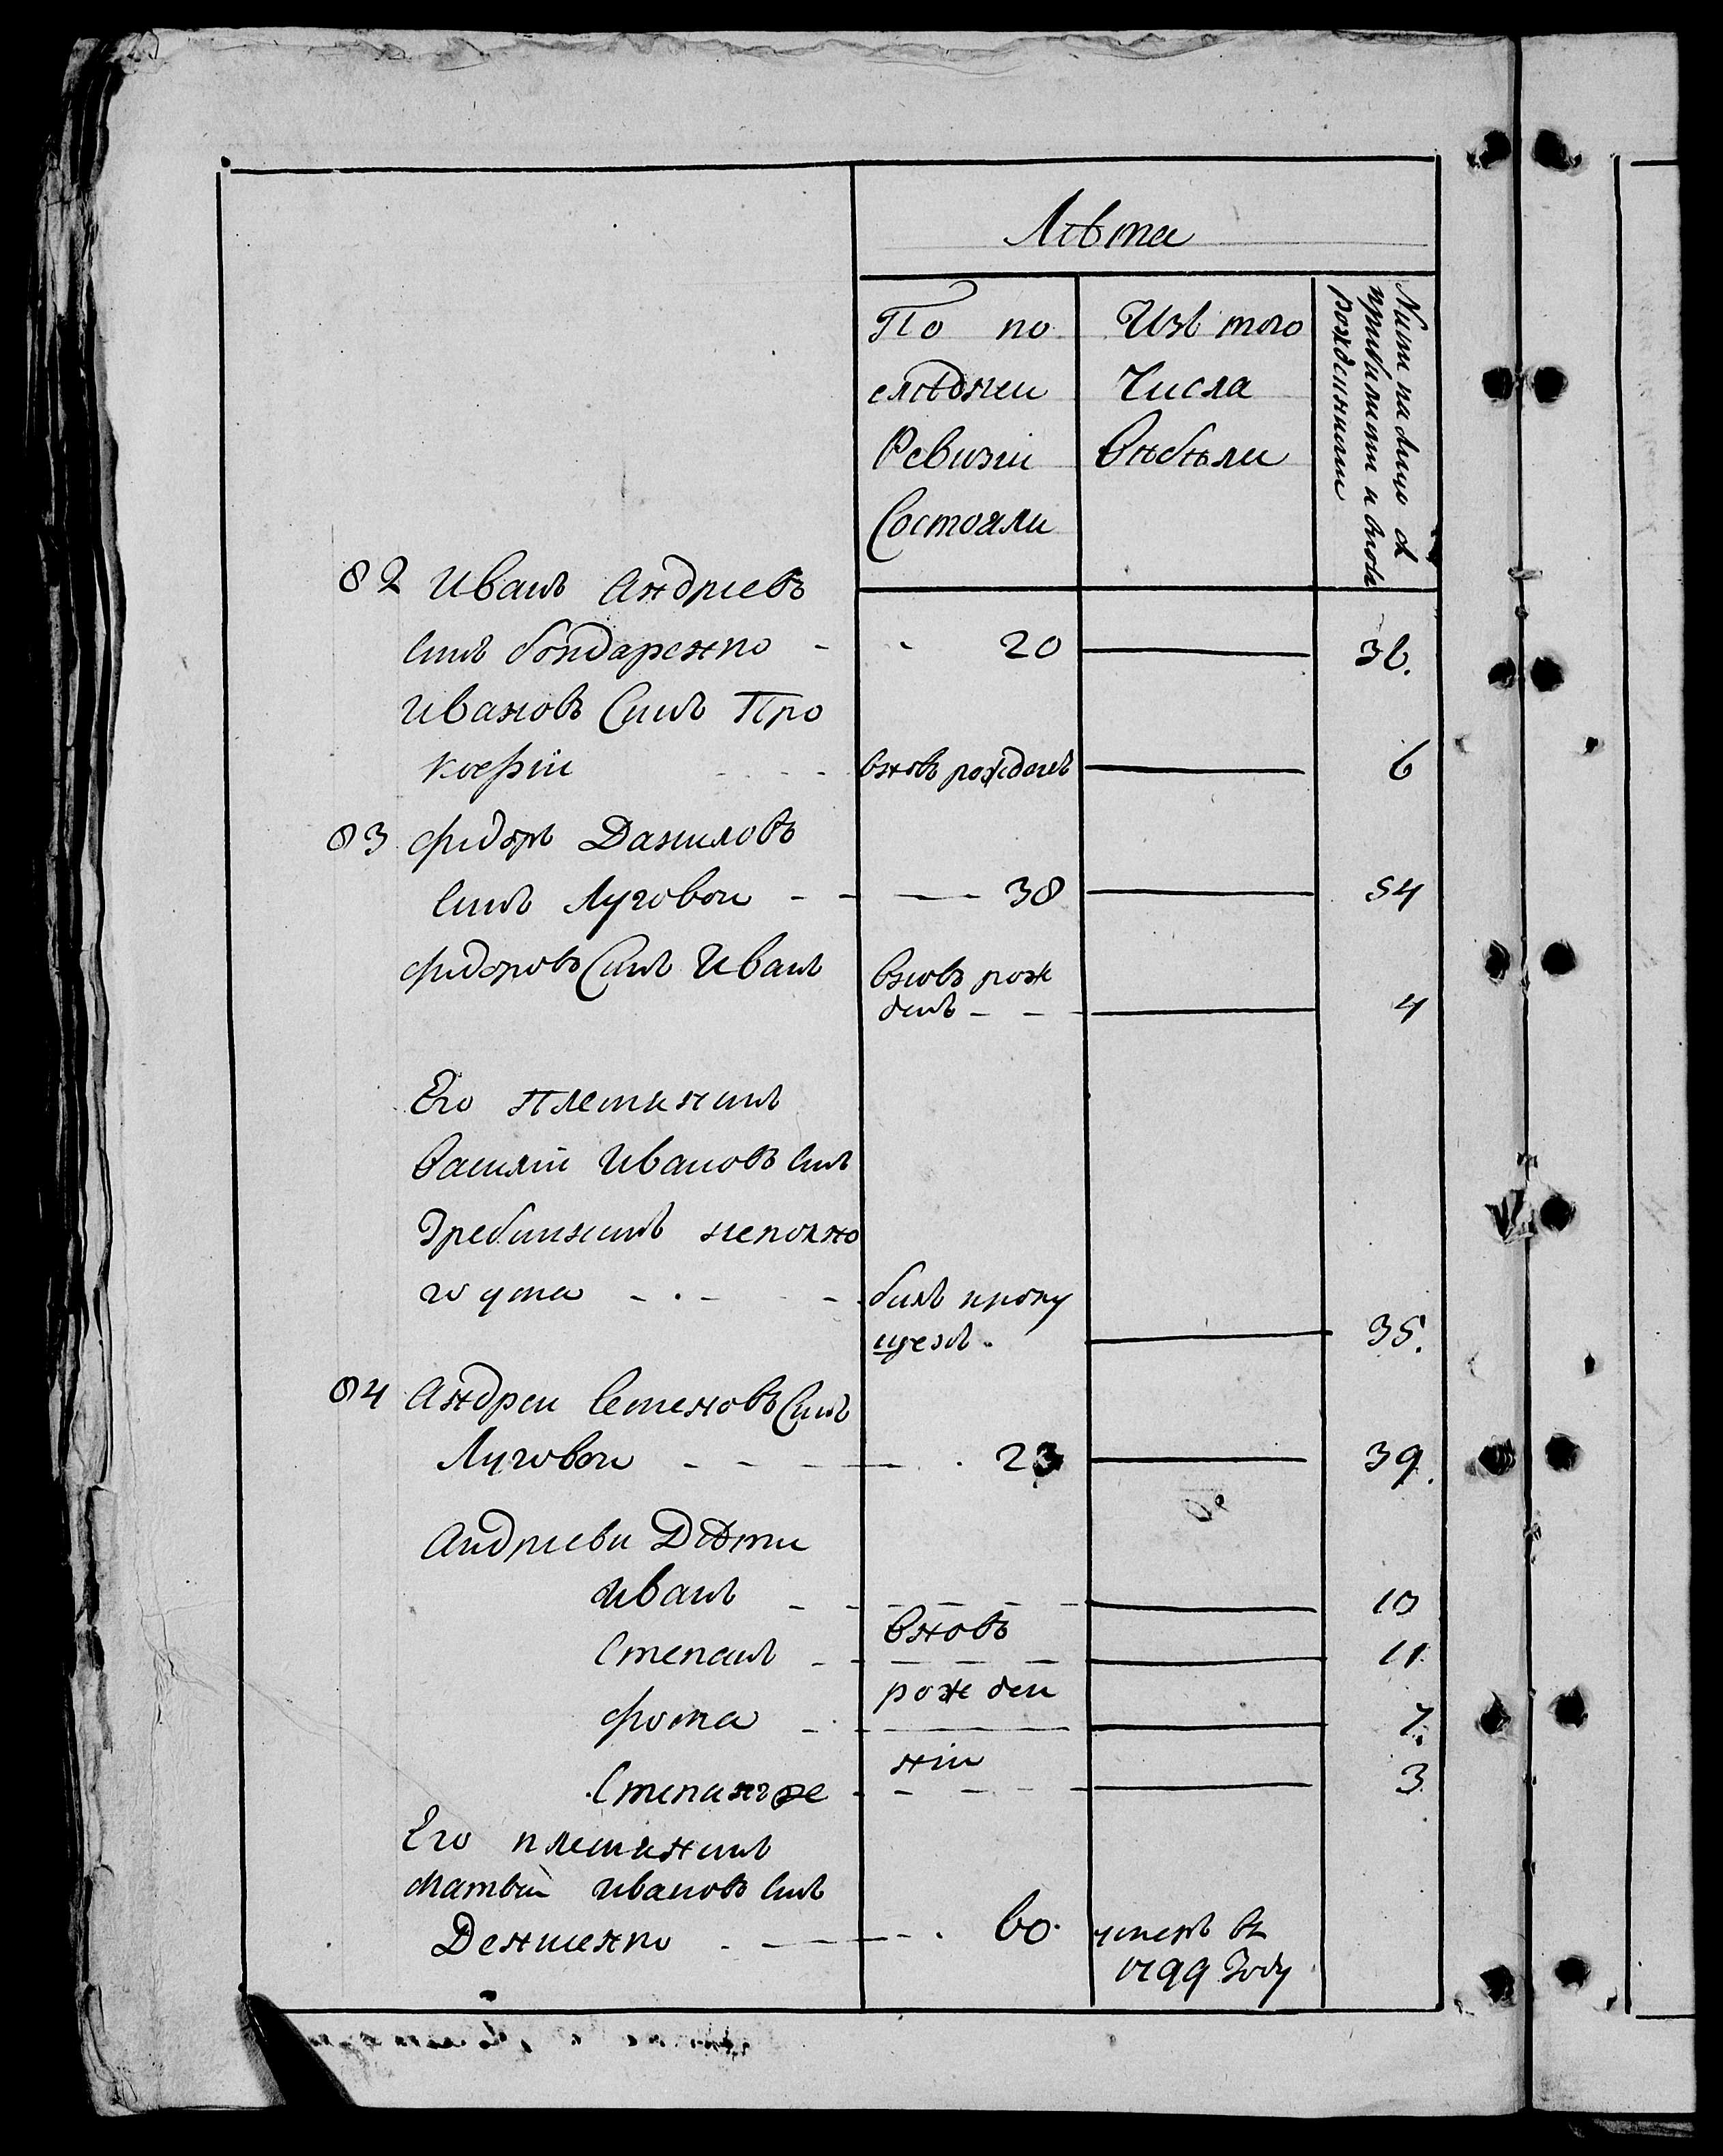 Лѣта
По по
слѣднеи
Ревизіи
Состояли
Изъ того
Числа
Выбыли
Нинѣ на лицо съ
прибилими и вновь
рожденними
82 Иванъ Андріевъ
синъ бондаренко - - 20 36.
Ивановъ Синъ Про
кофіи - - - вновъ рожденъ 6
83 фидоръ Даниловъ
синъ Луговои - - 38 54
фидоровъ Синъ Иванъ вновъ рож
денъ - - - 4
Его племинникъ
Василіи Ивановъ синъ
Гребинникъ неполно
го ума - . - - - билъ пропу
щенъ. 35.
84 Андреи Семеновъ Синъ
Луговои - - - . 23 39.
Андріеви Дѣти
Иванъ - - - 13
вновъ
Степанъ - - - 11
рожден
фома - - - 7.
ніи
Степанъ же - - - 3
Его племинникъ
Матвѣи Ивановъ синъ
Денисенко - - - . 60. умеръ въ
1799 Году